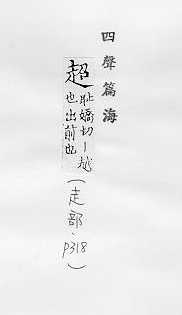 四聲篇海
超 耻嬌切｜越
也出前
(走部、
p318)